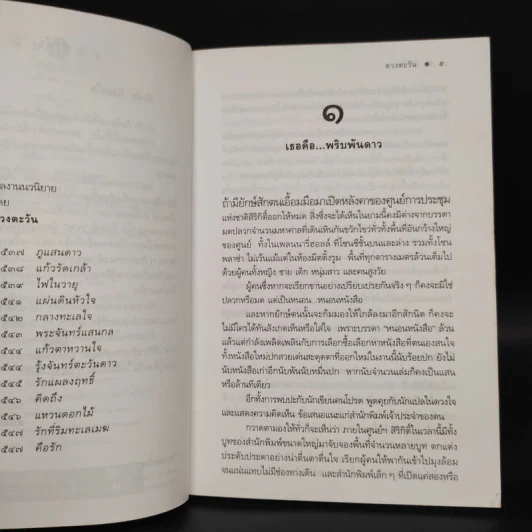 ลงานนวนิยาย
วงตะวัน
๕๓๗ ภูแสนดาว
๕๓๘ แก้วรัดเกล้า
๕๓๙ ไฟในวายุ
๕๔๑ แผ่นดินหัวใจ
๕๔๒ กลางทะเลใจ
๕๔๓ พระจันทร์แสนกล
๕๔๔ แก้วตาหวานใจ
๕๔๕ รุ้งจันทร์ตะวันดาว
๕๔๕ รักแผลงฤทธิ์
๕๔๖ คิดถึง
๕๔๖ แหวนดอกไม้
๕๔๗ รักที่ริมทะเลเมฆ
๕๔๗ คือรัก
ดวงตะวัน ● ๕
๑
เธอคือ...พริบพันดาว
ถ้ามียักษ์สักตนเอื้อมมือมาเปิดหลังคาของศูนย์การประชุม
แห่งชาติสิริกิติ์ออกให้หมด สิ่งซึ่งจะได้เห็นในยามนี้คงมิต่างจากบรรดา
มดปลวกจำนวนมหาศาลที่เดินเหินกันขวักไขว่ทั่วทั้งพื้นที่อันกว้างใหญ่
ของศูนย์ ทั้งในเพลนนารีฮอลล์ ที่โซนซีชั้นบนและล่าง รวมทั้งโซน
พลาซ่า ไม่เว้นแม้แต่ในห้องมีตติ้งรูม พื้นที่ทุกตารางเมตรล้วนเต็มไป
ด้วยผู้คนทั้งหญิง ชาย เด็ก หนุ่มสาว และคนสูงวัย
ผู้คนซึ่งหากจะเรียกขานอย่างเปรียบเปรยกันจริง ๆ ก็คงจะมิใช่
ปลวกหรือมด แต่เป็นหนอน...หนอนหนังสือ
และหากยักษ์ตนนั้นจะก้มมองให้ใกล้ลงมาอีกสักนิด ก็คงจะ
ไม่มีใครได้ทันสังเกตเห็นหรือใส่ใจ เพราะบรรดา “หนอนหนังสือ” ล้วน
แล้วแต่กำลังเพลิดเพลินกับการเลือกซื้อเลือกหาหนังสือที่ตนเองสนใจ
ทั้งหนังสือใหม่ปกสวยเด่นสะดุดตาที่ออกใหม่ในงานนี้นับร้อยปก ยังไม่
นับหนังสือเก่าอีกนับพันนับหมื่นปก หากนับจำนวนเล่มก็คงเป็นแสน
หรือล้านทีเดียว
อีกทั้งการพบปะกับนักเขียนคนโปรด พูดคุยกับนักแปลในดวงใจ
และแสดงความคิดเห็น ข้อเสนอแนะแก่สำนักพิมพ์เจ้าประจำของตน
กวาดตามองให้ทั่วก็จะเห็นว่า ภายในศูนย์ฯ สิริกิติ์ในเวลานี้มีทั้ง
บูทของสำนักพิมพ์ขนาดใหญ่มาจับจองพื้นที่จำนวนหลายบูท ตกแต่ง
ประดับประดาอย่างน่าตื่นตาตื่นใจ เรียกผู้คนให้พากันเข้าไปมุงล้อม
จนแน่นแทบไม่มีช่องทางเดิน และสำนักพิมพ์เล็ก ๆ ที่เปิดแค่สองหรือ